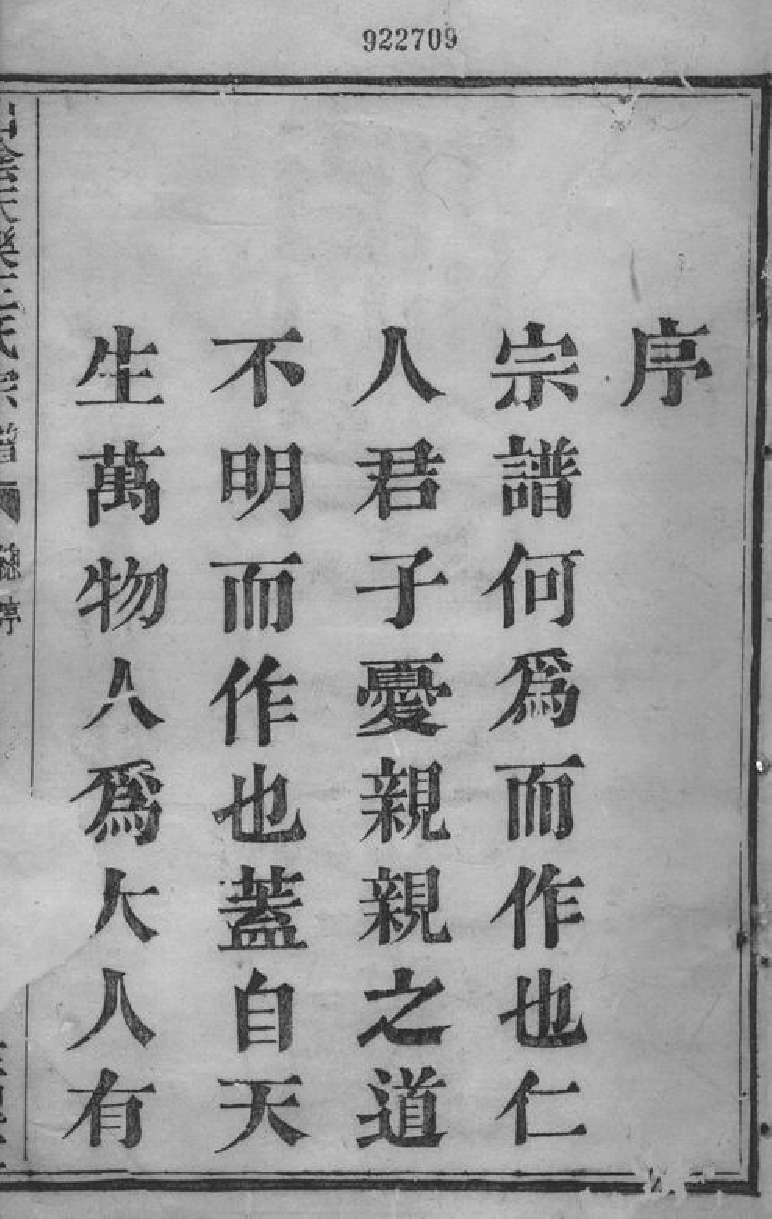 922709
序
宗譜何爲而作也仁
人君子憂親親之道
不明而作也蓋自天
生萬物人爲大人有
氏宗譜
總序